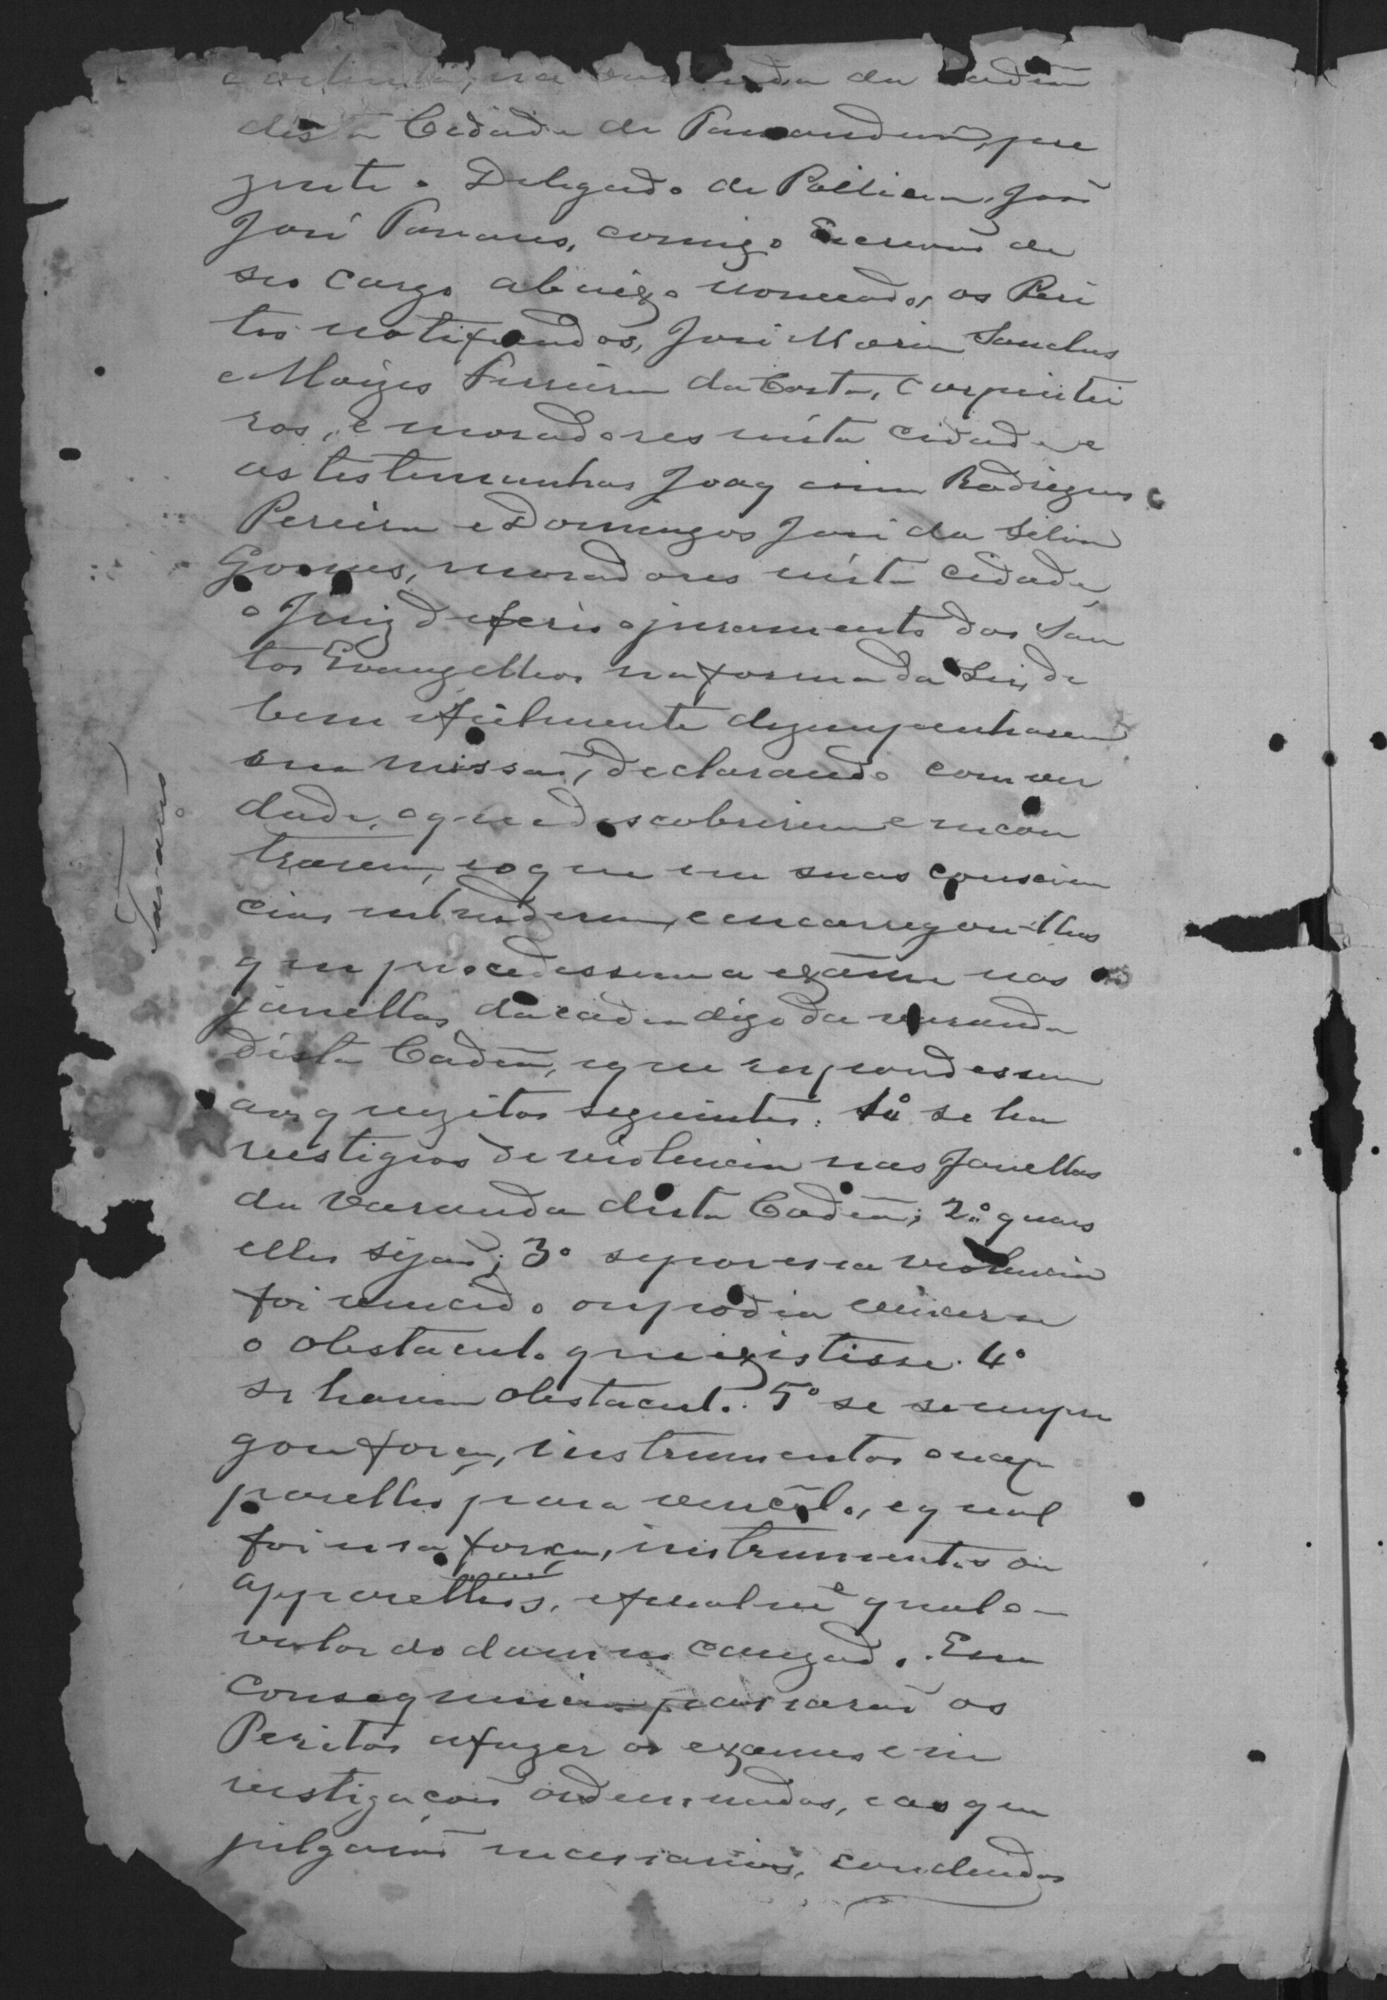 na da Cadêa
desta Cidade de Paranaguá, pre
zente o Delegado de Policia João
José Tavares, comigo Escrivaõ de
seo cargo abaixo nomeado, os Peri
tos notificados, José Maria Sanches
e Moizes Ferreira da Costa, Carpintei
ros, e moradores nésta cidade e
as testemunhas Joaquim Rodrigues
Pereira e Domingos José da Silva
Gomes, moradores nésta Cidade,
o Juiz deferio o juramento dos San
tos Evangelhos na forma da Lei, de
bem e fielmente dezempenharem
sua missaõ, declarando com ver
dade, o que descobrirem e encon
trarem, e o que em suas conscien
cias entenderem, e encarregou-lhes
que procedessem a exáme nas
janellas da cadea digo da varanda
désta Cadêa, e que respondessem
aos quezitos seguintes: 1º se ha
vestigios de violencia nas janellas
da varanda desta Cadêa; 2º quaes
elles sejaõ; 3º se por essa violencia
foi vencido ou podia vencer-se
o obstaculo que existisse. 4º
se havia obstaculo. 5º se se empre
gou força, instrumentos ou ap
parelhos para vencêl-o, e qual
foi essa força, instrumentos ou
apparelhos, e finalmẽ qual o
valor do damno cauzado. Em
consequencia passaraõ os
Peritos a fazer os exames e in
vestigações ordennadas, e as que
julgaraõ necessarias, concluidos
Tavares